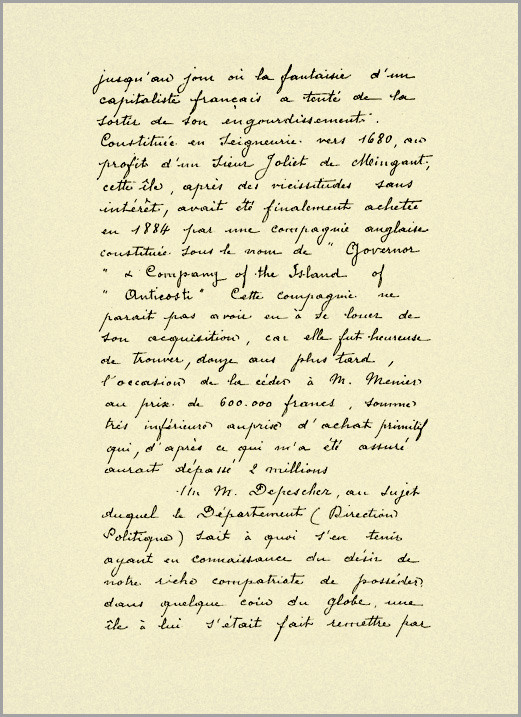 jusqu'au jour où la fantaisie d'un
capitaliste français a tenté de la
sortir de son engourdissement.
Constituée en Seigneurie vers 1680, au
profit d'un Sieur Joliet de Mingant,
cette île, après des vicissitudes sans
intérêt, avait été finalement achetée
en 1884 par une compagnie anglaise
constituée sous le nom de " Governor
" & Company of the Island of
" Anticosti " Cette compagnie ne
parait pas avoir eu à se louer de
son acquisition, car elle fut heureuse
de trouver, douze ans plus tard,
l'occasion de la céder à M. Menier
au prix de 600.000 francs, somme
très inférieure au prix d'achat primitif
qui, d'après ce qui m'a été assuré
aurait dépassé 2 millions
Un M. Depescher, au sujet
duquel le Département (Direction
Politique) sait à quoi s'en tenir
ayant eu connaissance du désir de
notre riche compatriote de posséder,
dans quelque coin du globe, une
île à lui s'était fait remettre par